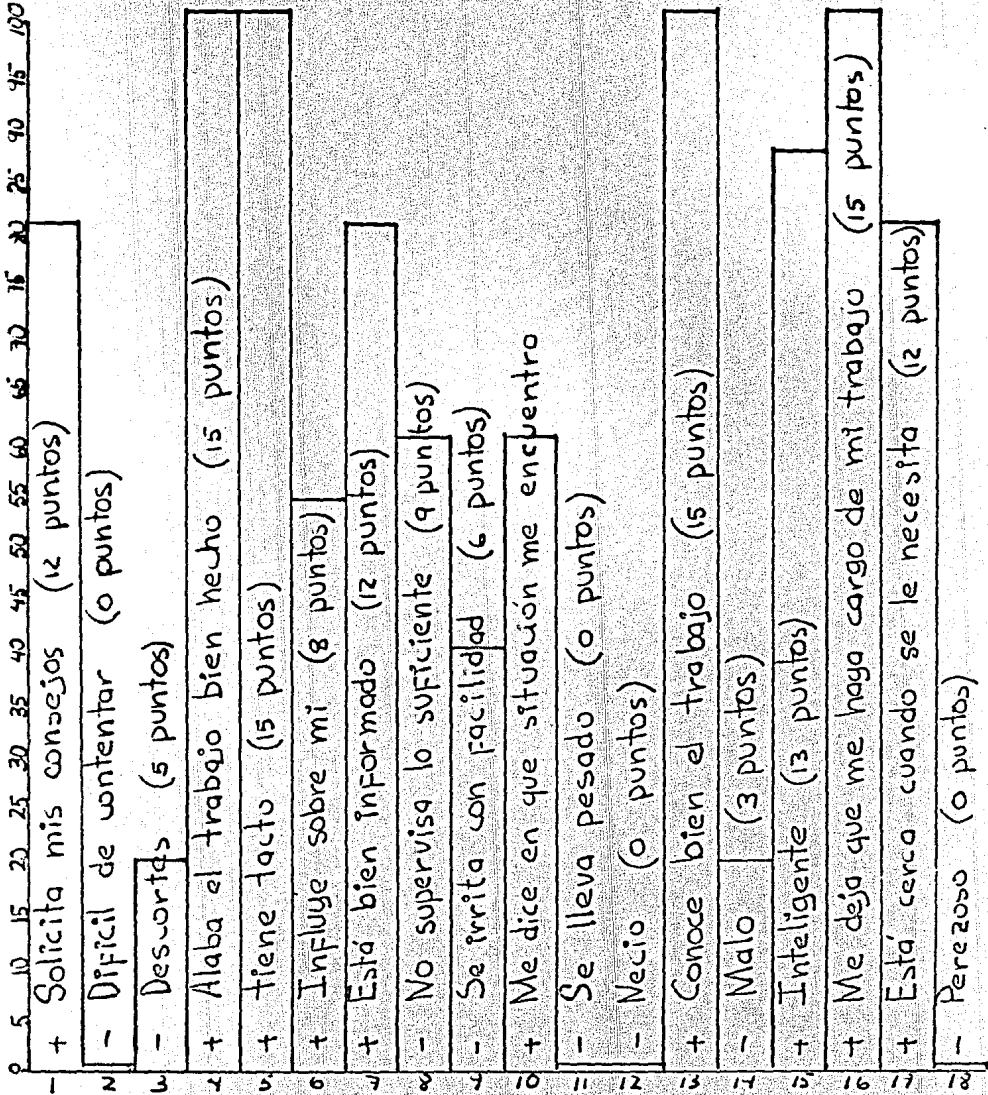 0 5 10 15 20 25 30 35 40 45 50 55 60 65 70 75 80 85 90 95 100
1 + Solicita mis consejos (12 puntos)
2 - Dificil de contentar (0 puntos)
3 - Descortes (5 puntos)
4 + Alaba el trabajo bien hecho (15 puntos)
5 + tiene tacto (15 puntos)
6 + Influye sobre mi (8 puntos)
7 + Está bien informado (12 puntos)
8 - No supervisa lo suficiente (9 puntos)
9 - Se irrita con facilidad (6 puntos)
10 + Me dice en que situación me encuentro
11 - Se lleva pesado (0 puntos)
12 - Necio (0 puntos)
13 + Conoce bien el trabajo (15 puntos)
14 - Malo (3 puntos)
15 + Inteligente (13 puntos)
16 + Me deja que me haga cargo de mi trabajo (15 puntos)
17 + Está cerca cuando se le necesita (12 puntos)
18 - Perezoso (0 puntos)